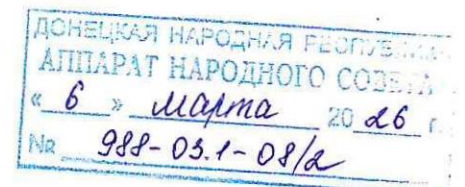 ДОНЕЦКАЯ НАРОДНАЯ РЕСПУБЛИКА
АППАРАТ НАРОДНОГО СОВЕТА
« 6 » марта 20 26 г.
№ 988-03.1-08/2